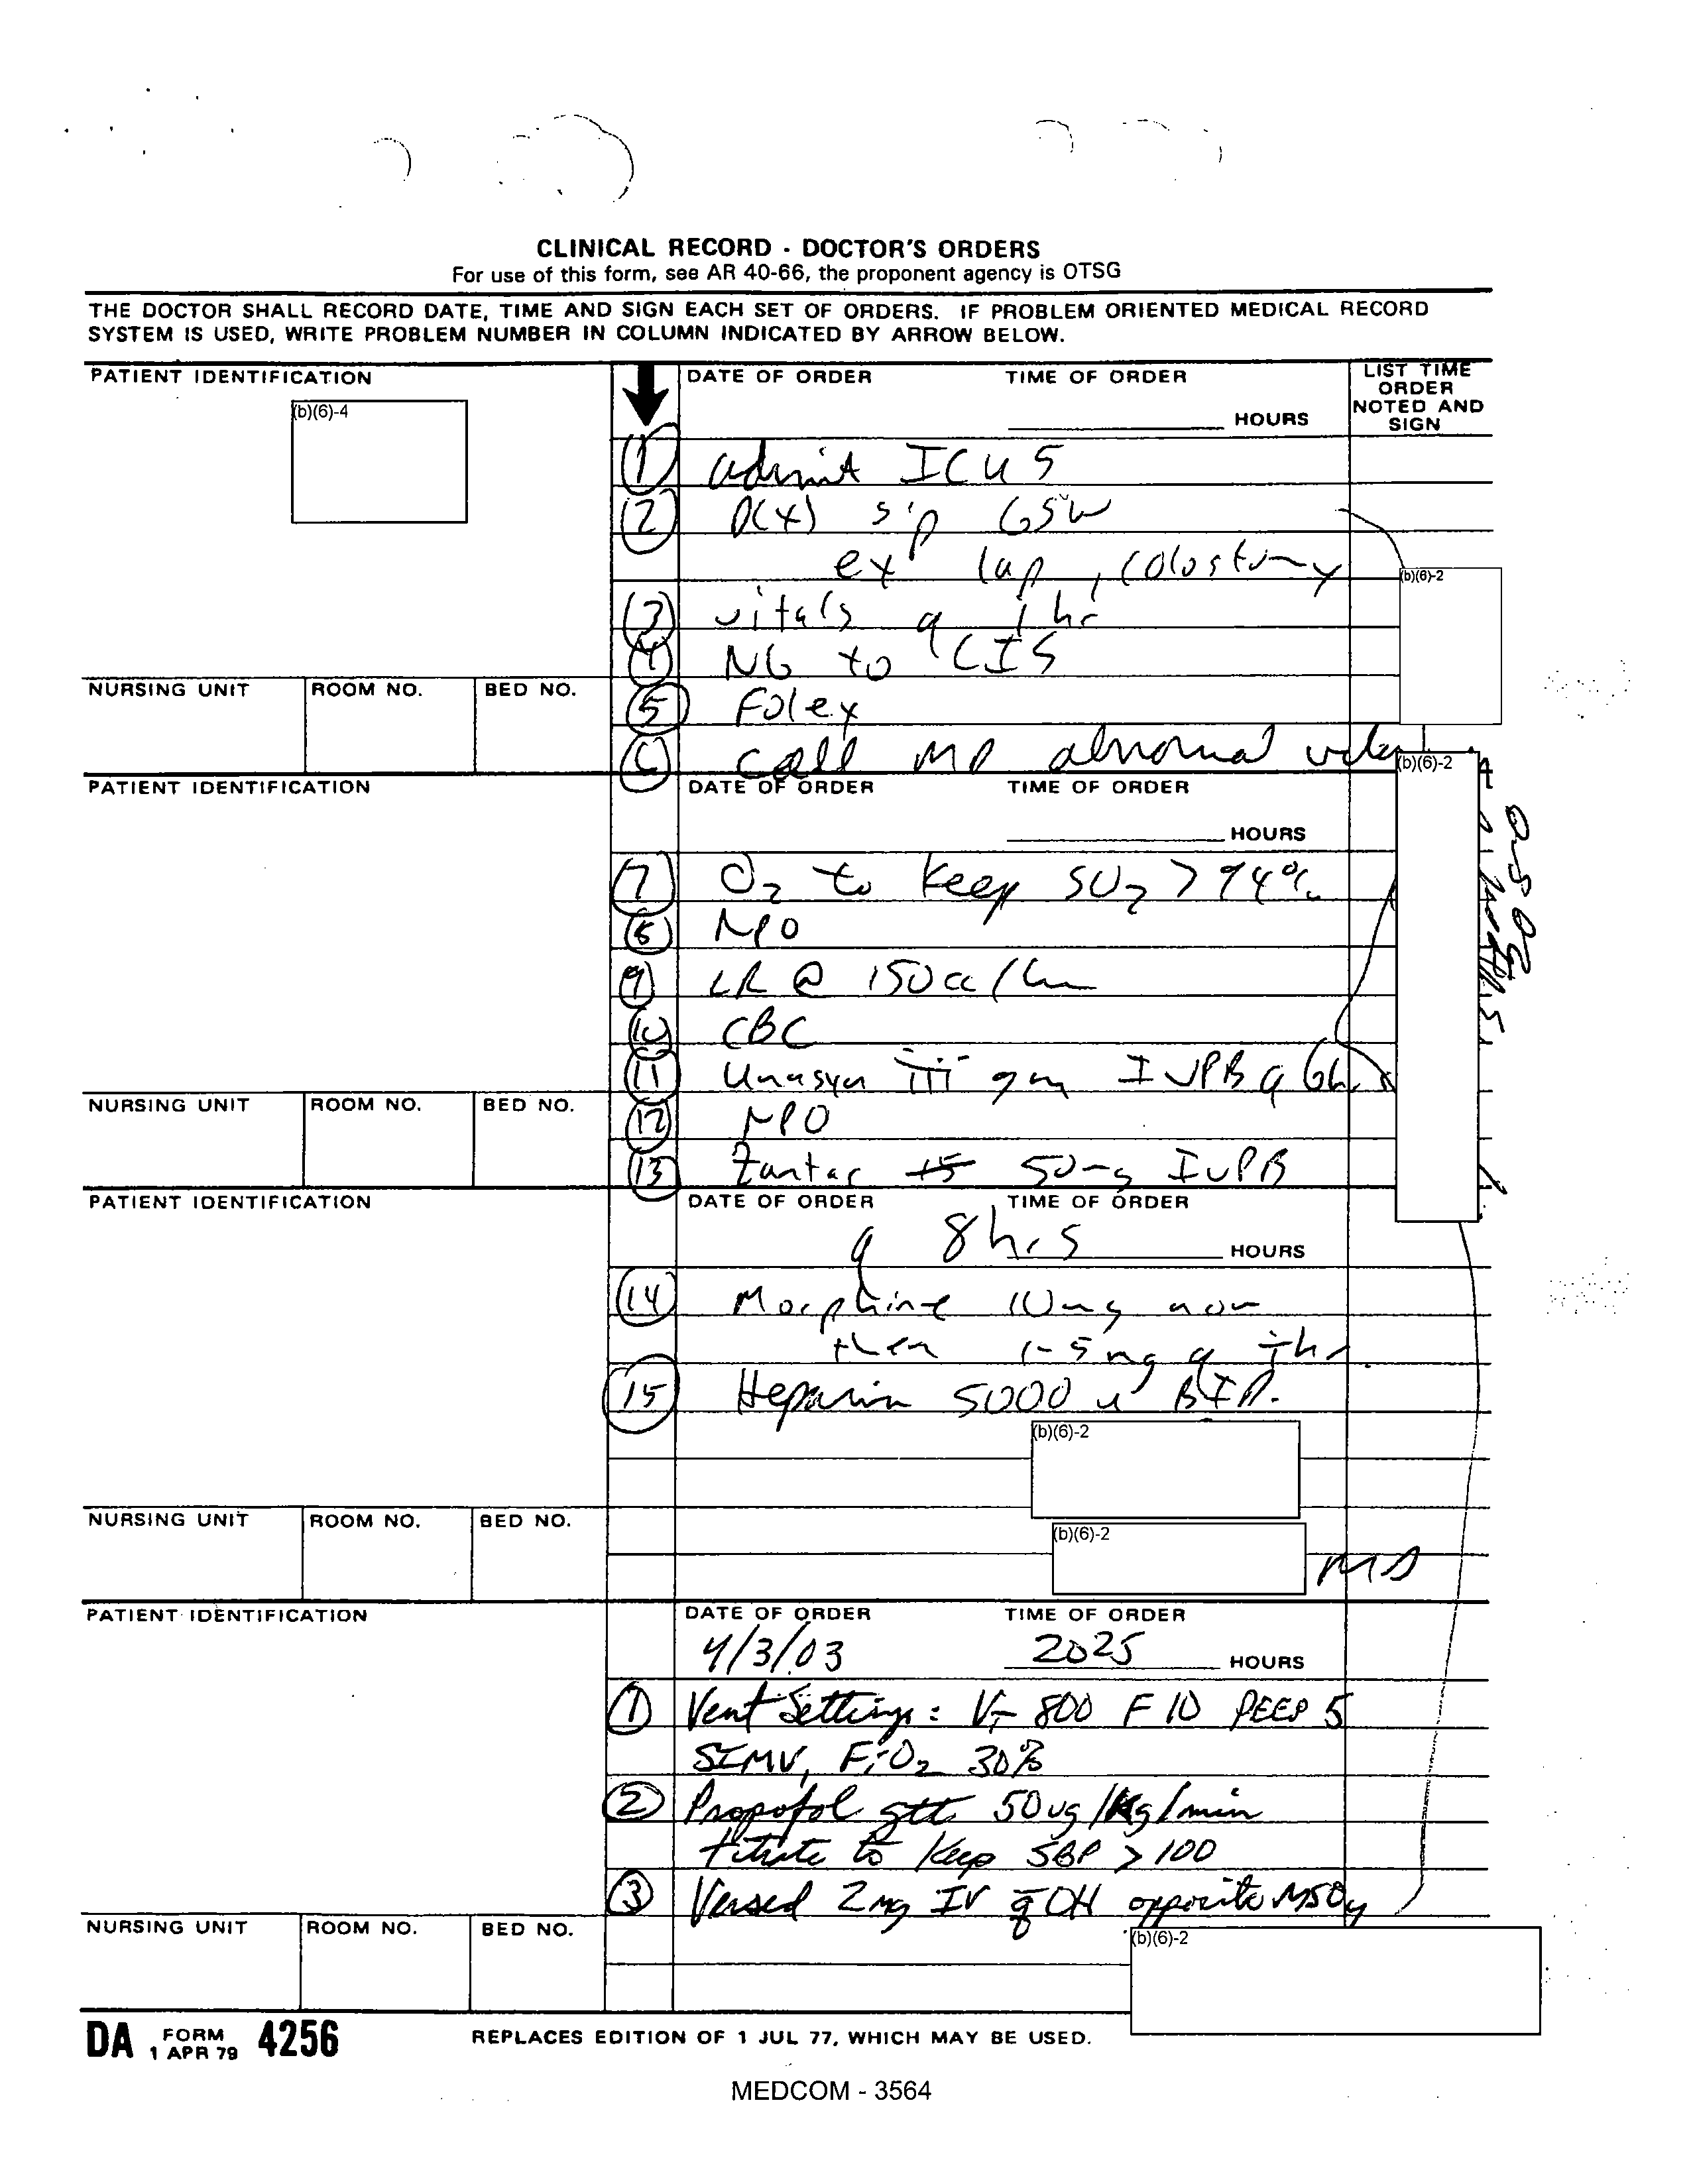 CLINICAL RECORD - DOCTOR'S ORDERS
For use of this form, see AR 40-66, the proponent agency is OTSG
THE DOCTOR SHALL RECORD DATE, TIME AND SIGN EACH SET OF ORDERS. IF PROBLEM ORIENTED MEDICAL RECORD
SYSTEM IS USED, WRITE PROBLEM NUMBER IN COLUMN INDICATED BY ARROW BELOW.
PATIENT IDENTIFICATION
(b)(6)-4
DATE OF ORDER TIME OF ORDER
HOURS
LIST TIME
ORDER
NOTED AND
SIGN
1 admit ICU 5
2 D(x) s/p GSW
ex lap, colostomy
(b)(6)-2
3 vitals q 1 hr
4 NG to LIS
NURSING UNIT ROOM NO. BED NO.
5 Foley
6 call MD abnormal
(b)(6)-2
PATIENT IDENTIFICATION
DATE OF ORDER TIME OF ORDER
HOURS
7 O2 to keep SO2 > 94%
8 NPO
9 LR @ 150cc/hr
10 CBC
11 Unasyn iii gm IVPB q 6h
NURSING UNIT ROOM NO. BED NO.
12 NPO
13 Zantac 50mg IVPB
PATIENT IDENTIFICATION
DATE OF ORDER TIME OF ORDER
q 8hrs HOURS
14 Morphine 10mg now
then 1-5mg q 1hr.
15 Heparin 5000 u BID.
(b)(6)-2
NURSING UNIT ROOM NO. BED NO.
(b)(6)-2 MD
PATIENT IDENTIFICATION
DATE OF ORDER TIME OF ORDER
4/3/03 2025 HOURS
1 Vent Settings: VT 800 F 10 PEEP 5
SIMV, FiO2 30%
2 Propofol gtt 50ug/Kg/min
titrate to Keep SBP > 100
3 Versed 2mg IV q OH opposite MSO4
NURSING UNIT ROOM NO. BED NO.
(b)(6)-2
DA FORM 4256
1 APR 79
REPLACES EDITION OF 1 JUL 77, WHICH MAY BE USED.
MEDCOM - 3564